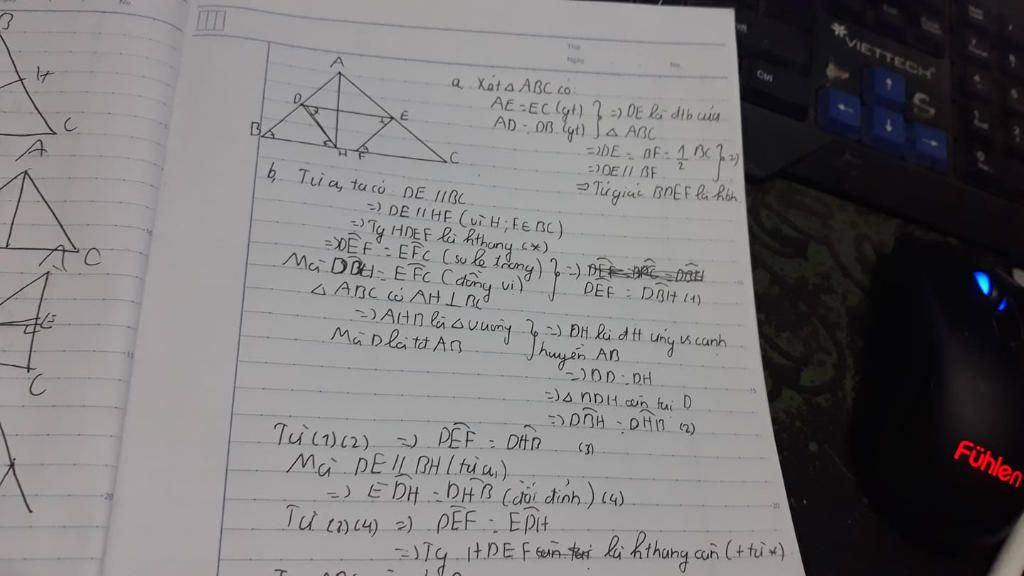 Thứ
Ngày
No.
a, Xét △ABC có:
AE = EC (gt)
AD = DB (gt)
=> DE là đtb của
△ ABC
=> DE = BF = 1/2 BC
=> DE // BF
=> Tứ giác BDEF là hbh
b, Từ a, ta có DE // BC
=> DE // HF (vì H; F ∈ BC)
=> Tg HDEF là hthang (*)
=> DEF = EFC (so le trong)
Mà DBH = EFC (đồng vị)
=> DEF = DBC = DBH
DEF = DBH (1)
△ ABC có AH ⊥ BC
=> AHB là △ vuông
Mà D là tđ AB
=> DH là đtt ứng vs cạnh
huyền AB
=> BD = DH
=> △ BDH cân tại D
=> DBH = DHB (2)
Từ (1) (2) => DEF = DHB (3)
Mà DE // BH (từ a,)
=> EDH = DHB (đối đỉnh) (4)
Từ (3) (4) => DEF = EDH
=> Tg HDEF cân tại là hthang cân (+ từ *)
A
D
E
B
H
F
C
B
H
C
A
C
A
E
C
VIETTECH
S
Ctrl
Fühlen